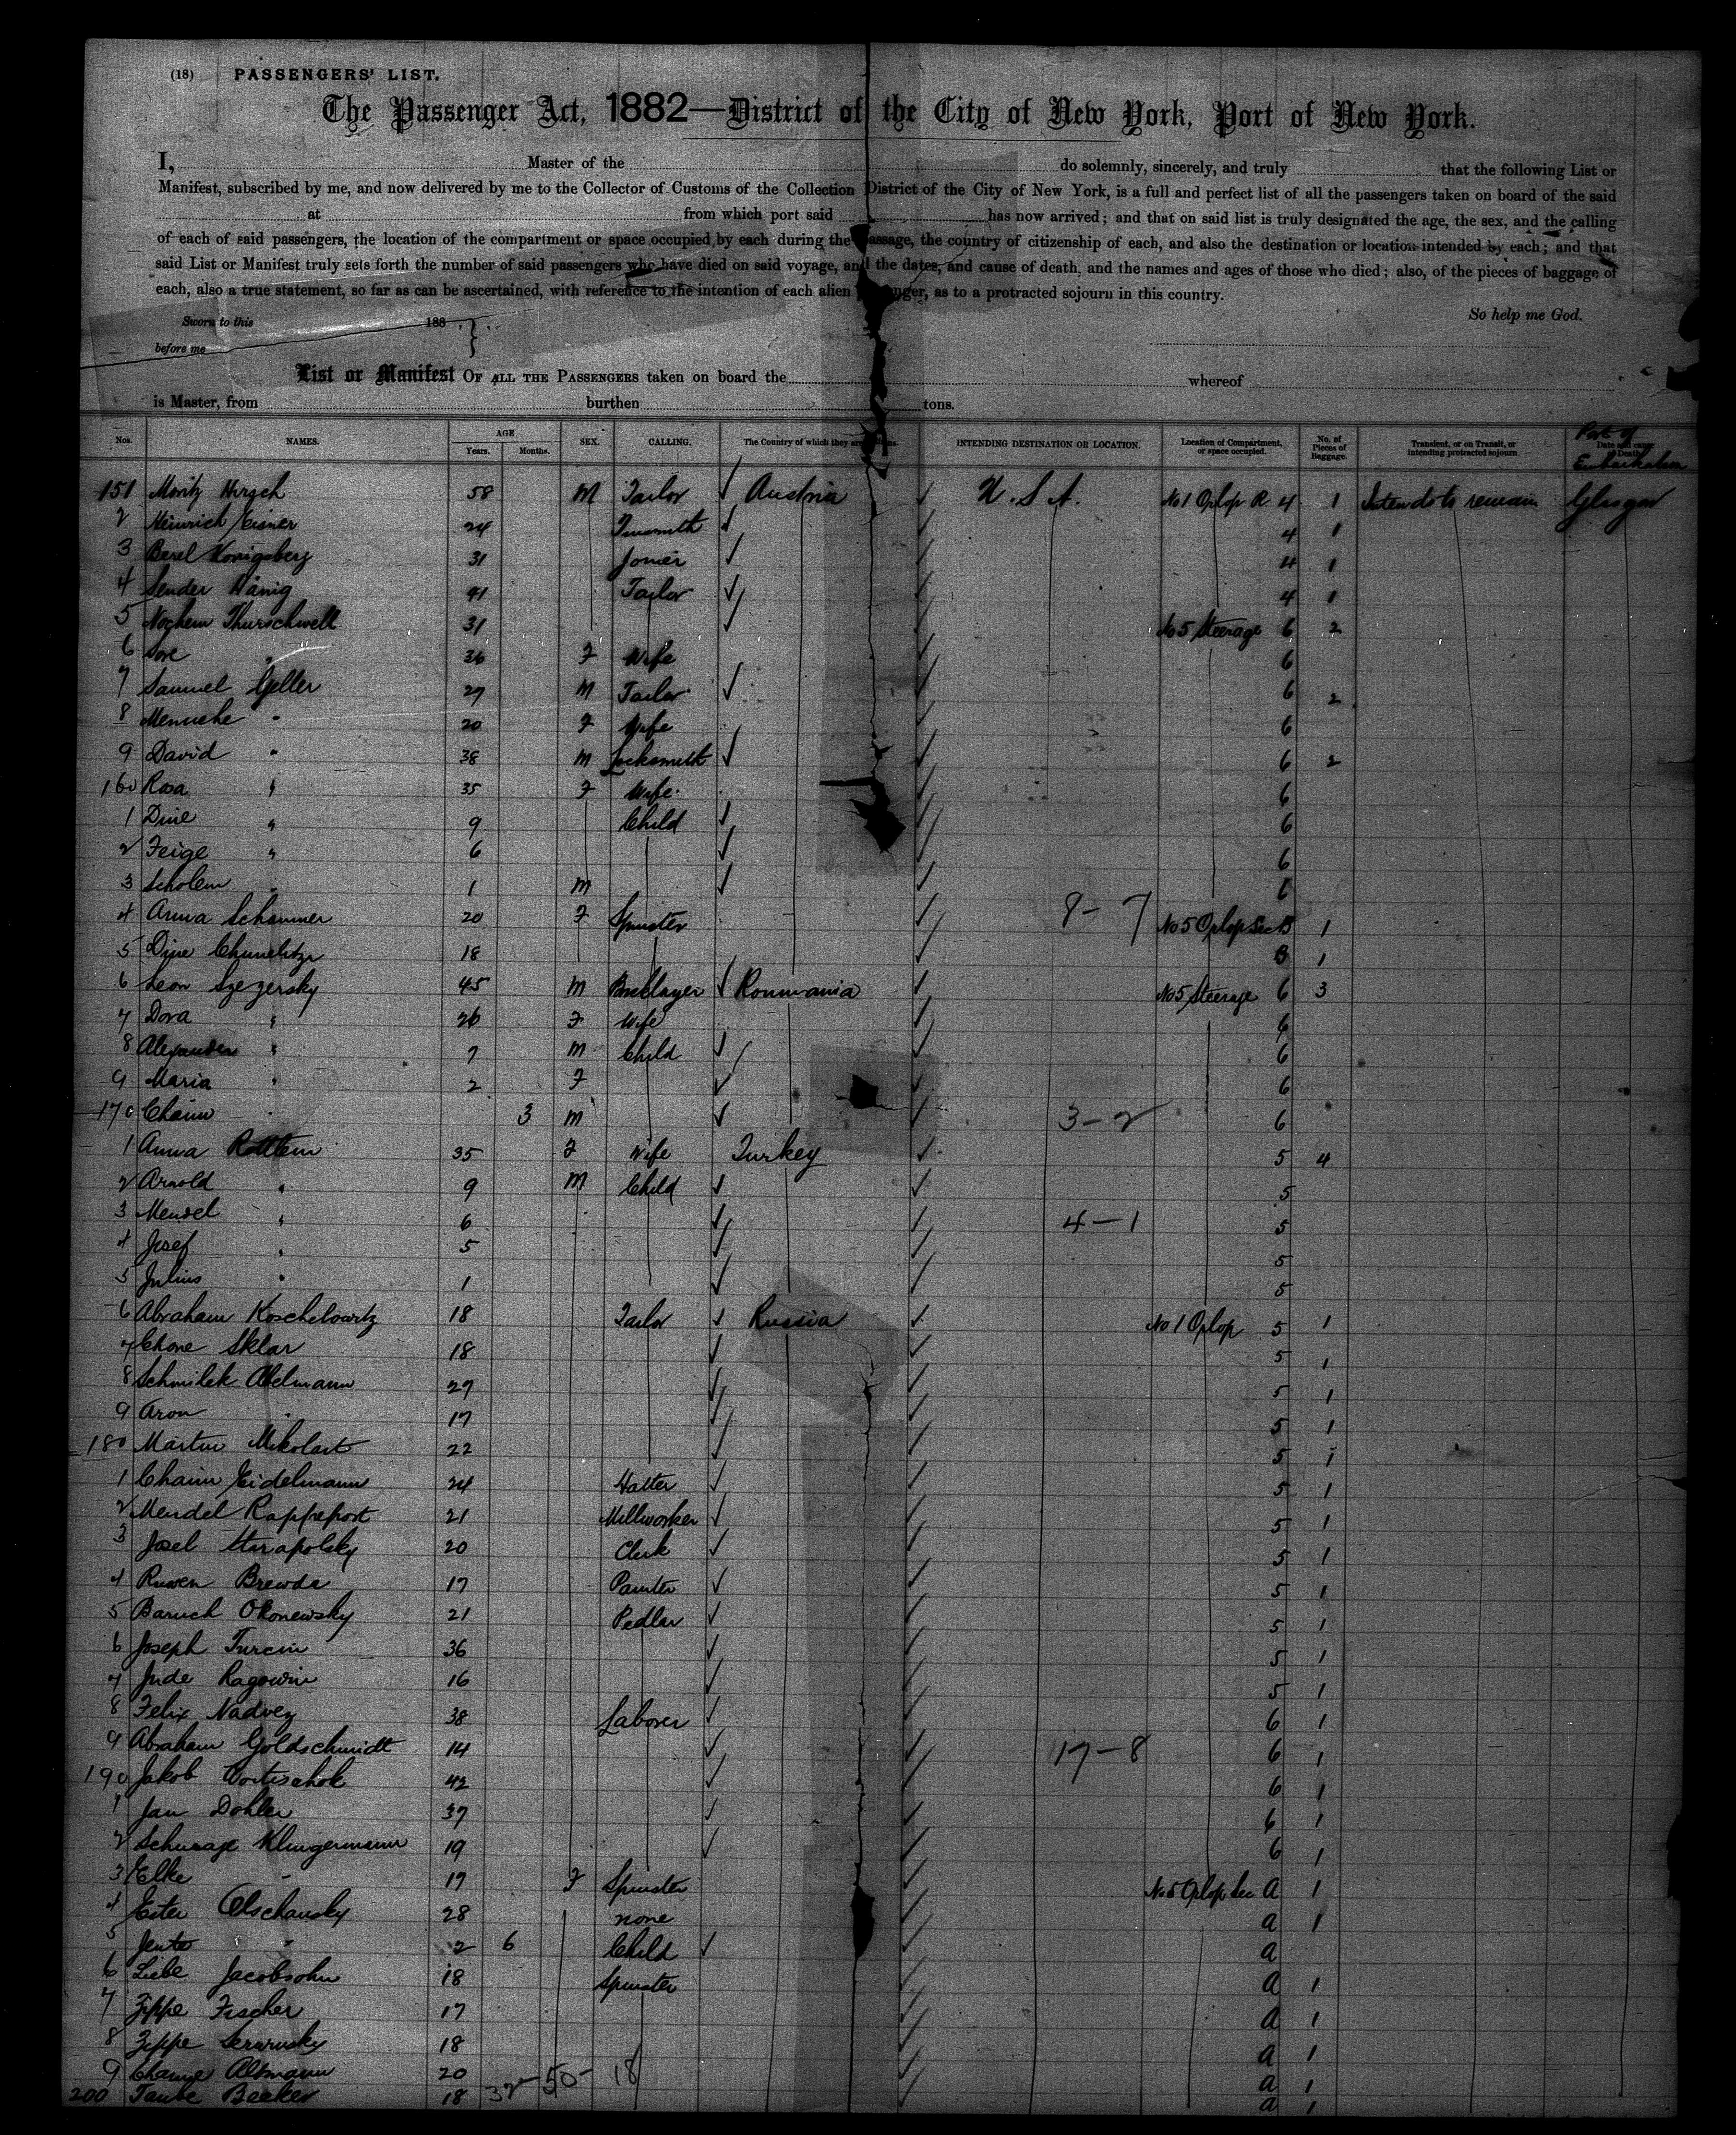 (18) PASSENGERS' LIST.
The Passenger Act, 1882—District of the City of New York, Port of New York.
I, Master of the do solemnly, sincerely, and truly that the following List or
Manifest, subscribed by me, and now delivered by me to the Collector of Customs of the Collection District of the City of New York, is a full and perfect list of all the passengers taken on board of the said
at from which port said has now arrived; and that on said list is truly designated the age, the sex, and the calling
of each of said passengers, the location of the compartment or space occupied by each during the passage, the country of citizenship of each, and also the destination or location intended by each; and that
said List or Manifest truly sets forth the number of said passengers who have died on said voyage, and the dates, and cause of death, and the names and ages of those who died; also, of the pieces of baggage of
each, also a true statement, so far as can be ascertained, with reference to the intention of each alien passenger, as to a protracted sojourn in this country.
Sworn to this 188 So help me God.
before me
List or Manifest OF ALL THE PASSENGERS taken on board the whereof
is Master, from burthen tons.
Nos. NAMES. AGE Years. Months. SEX. CALLING. The Country of which they are INTENDING DESTINATION OR LOCATION. Location of Compartment, or space occupied. No. of Pieces of Baggage. Transient, or on Transit, or intending protracted sojourn. Port of Embarkation
151 Moritz Hirsch 58 M Tailor Austria U.S.A. No 1 Orlop R 4 1 Intends to remain Glasgow
2 Heinrich Eisner 24 Tinsmith 4 1
3 Berel Konigsberg 31 Joiner 4 1
4 Sender König 41 Tailor 4 1
5 Nochem Thurschwell 31 No 5 Steerage 6 2
6 Sore " 26 F Wife 6
7 Samuel Geller 27 M Tailor 6 2
8 Menuche " 20 F Wife 6
9 David " 38 M Locksmith 6 2
160 Rosa " 35 F Wife 6
1 Dine " 9 Child 6
2 Feige " 6 6
3 Scholem " 1 M 6
4 Anna Schammer 20 F Spinster 8-7 No 5 Orlop Sec B 1
5 Dine 18 B 1
6 Leon Szezersky 45 M Roumania No 5 Steerage 6 3
7 Dora " 26 F Wife 6
8 Alexander " 7 M Child 6
9 Maria " 2 F 6
170 Chaim " 3 M 3-2 6
1 Anna 35 F Wife Turkey 5 4
2 Arnold " 9 M Child 5
3 Mendel " 6 4-1 5
4 Josef " 5 5
5 Julius " 1 5
6 Abraham Koschelowitz 18 Tailor Russia No 1 Orlop 5 1
7 Chone Sklar 18 5 1
8 Schmilek Abelmann 27 5 1
9 Aron " 17 5 1
180 Martin Mikolait 22 5 1
1 Chaim Eidelmann 24 Hatter 5 1
2 Mendel Rappeport 21 Millworker 5 1
3 Josel 20 Clerk 5 1
4 Ruwen Brewda 17 Painter 5 1
5 Baruch Okonewsky 21 Pedlar 5 1
6 Joseph Turcin 36 5 1
7 Jude Ragowin 16 5 1
8 Felix Nadvey 38 Laborer 6 1
9 Abraham Goldschmidt 14 17-8 6 1
190 Jakob 42 6 1
1 Jan Dohler 37 6 1
2 Klingermann 19 6 1
3 Elke " 17 F Spinster No 5 Orlop Sec A 1
4 Ester Olschansky 28 none A 1
5 Jente " 2 6 Child A
6 Liebe Jacobsohn 18 Spinster A 1
7 Zippe Fischer 17 A 1
8 Zippe 18 A 1
9 Altmann 20 A 1
200 Taube Becker 18 32-50-18 A 1